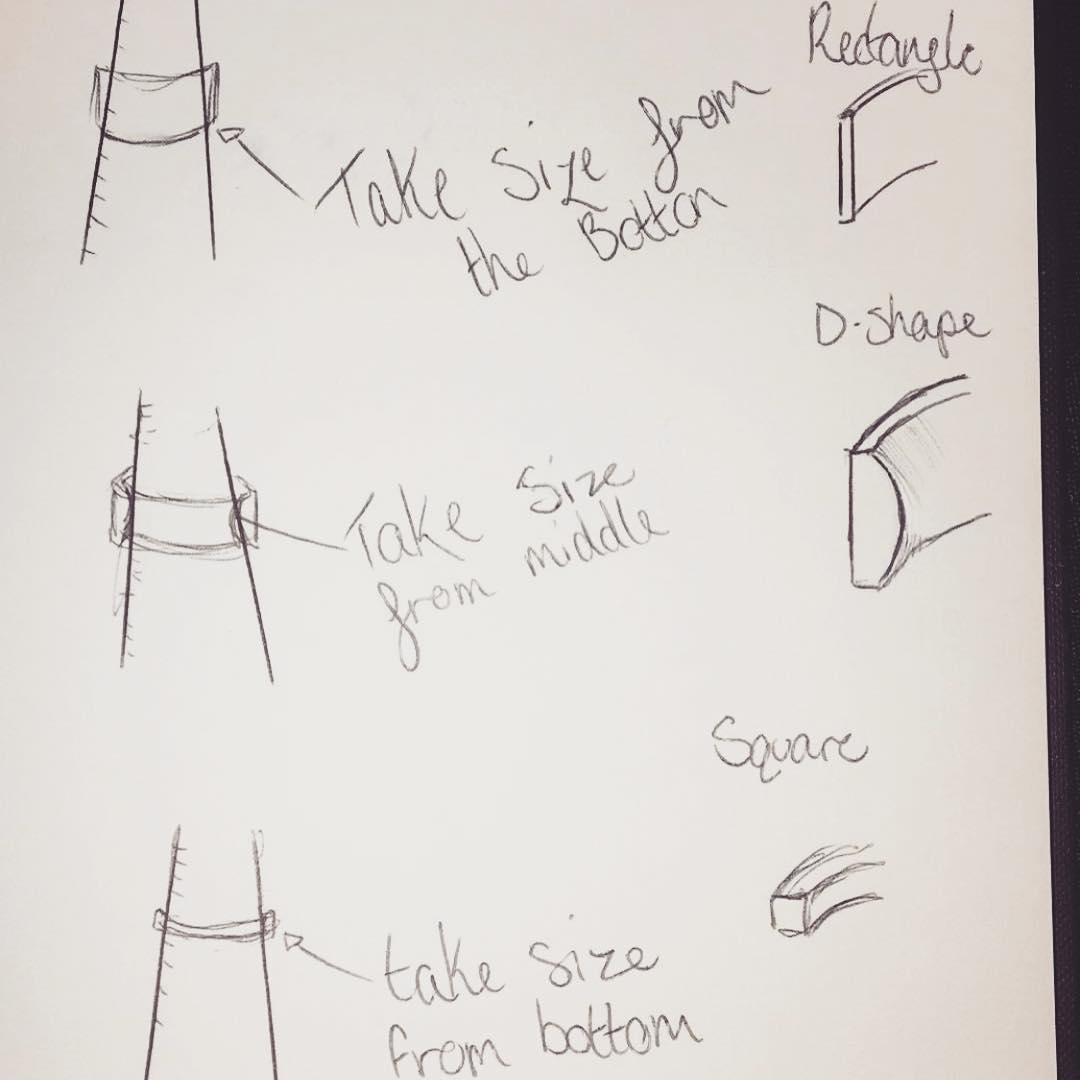 Rectangle
Take Size from
the Bottom
D-shape
Take Size
from middle
Square
take size
from bottom